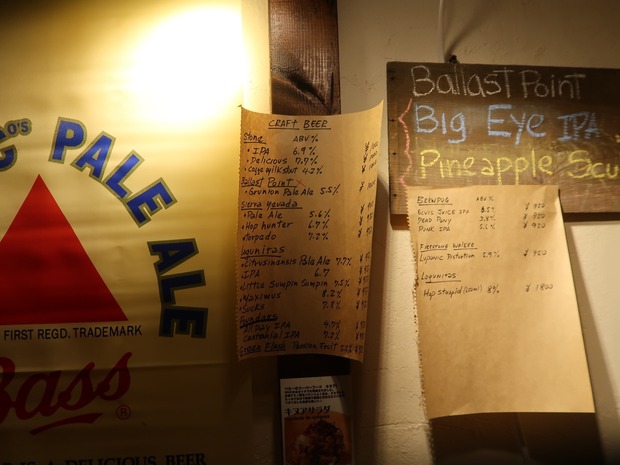 o's
PALE ALE
FIRST REGD. TRADEMARK
Bass ®
IS A DELICIOUS BEER
CRAFT BEER
Stone ABV%
• IPA 6.9%
• Delicious 7.7%
• Coffee milk stout 4.2%
Ballast Point
• Grunion Pale Ale 5.5%
Sierra Nevada
• Pale Ale 5.6%
• Hop hunter 6.7%
• Torpedo 7.2%
Lagunitas
• Citrusinensis Pale Ale 7.7%
• IPA 6.7
• Little Sumpin Sumpin 7.5%
• Maximus 8.2%
• Sucks 7.8%
Founders
All Day IPA 4.7%
Centennial IPA 7.2%
Green Flash Passion Fruit
Ballast Point
Big Eye IPA
Pineapple Scu
BREWDOG ABV%
ELVIS JUICE IPA ¥ 920
DEAD PONY 3.8% ¥ 920
PUNK IPA 5.6% ¥ 920
FIRESTONE WALKER
Luponic Distortion 5.9% ¥ 920
LAGUNITAS
Hop Stoopid 8% ¥ 1800
キヌアサラダ